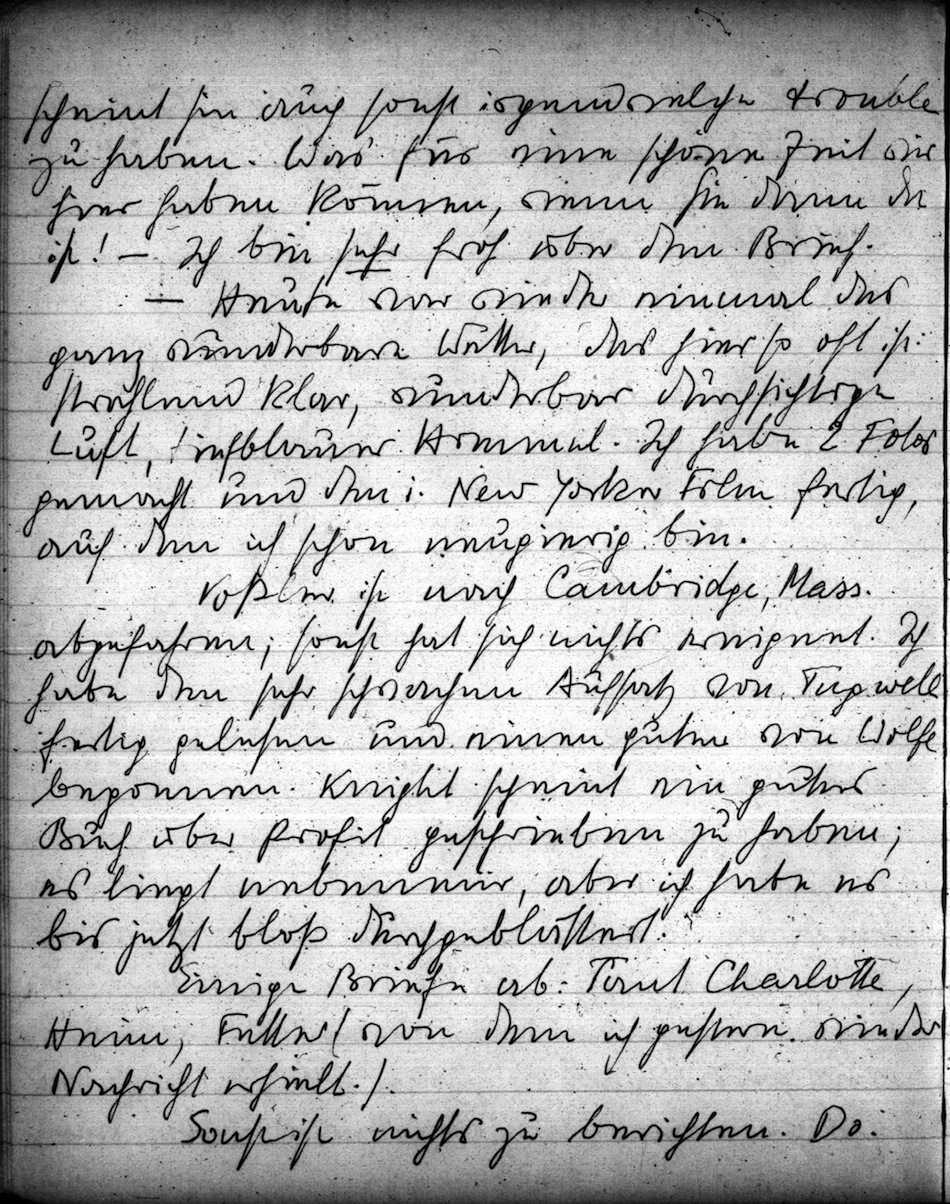 scheint sie auch sonst irgendwelche trouble
zu haben. Was für eine schöne Zeit wir
hier haben können, wenn sie dann da
ist! — Ich bin sehr froh über den Brief.
— Heute war wieder einmal das
ganz wunderbare Wetter, das hier so oft ist:
strahlend klar, wunderbar durchsichtige
Luft, tiefblauer Himmel. Ich habe 2 Fotos
gemacht und den i. New Yorker Film fertig,
auf den ich schon neugierig bin.
Voßler ist nach Cambridge, Mass.
abgefahren; sonst hat sich nichts ereignet. Ich
habe den sehr schwachen Aufsatz von Tugwell
fertig gelesen und einen guten von Wolfe
begonnen. Knight scheint ein gutes
Buch über Profit geschrieben zu haben;
es liegt neben mir, aber ich habe es
bis jetzt bloß durchgeblättert.
Einige Briefe ab: Tant Charlotte,
Heini, Fetter (von dem ich gestern wieder
Nachricht erhielt.).
Sonst ist nichts zu berichten. Do.